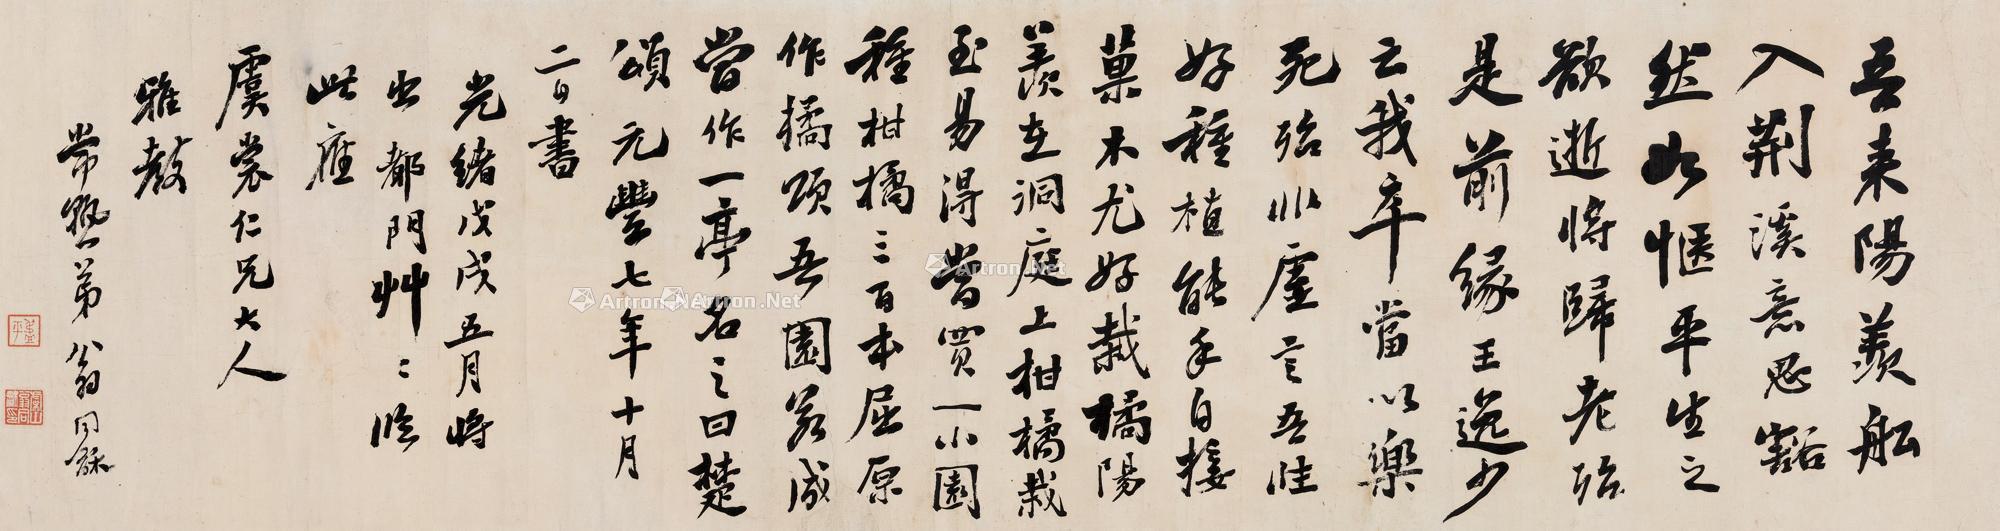 吾來陽羨船
入荆溪意思豁
然如愜平生之
欲逝將歸老殆
是前緣王逸少
云我卒當以樂
死殆非虛言吾性
好種植能手自接
菓木尤好栽橘陽
羨在洞庭上柑橘栽
至易得當買一小園
種柑橘三百本屈原
作橘頌吾園若成
當作一亭名之曰楚
頌元豐七年十月
二日書
光緒戊戌五月時
出都門艸〻臨
此應
虞裳仁兄大人
雅教
常熟弟翁同龢
Artron.Net
Artron.Net
Artron.Net